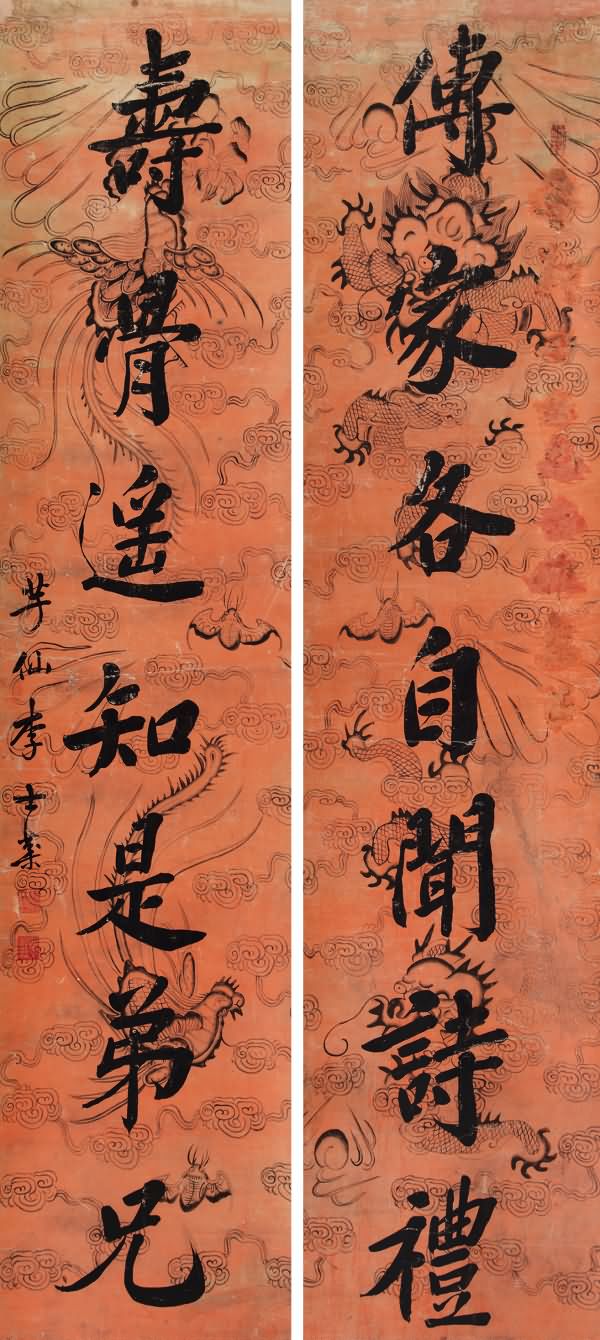 傳家各自聞詩禮
壽骨遥知是弟兄
芋仙李士棻